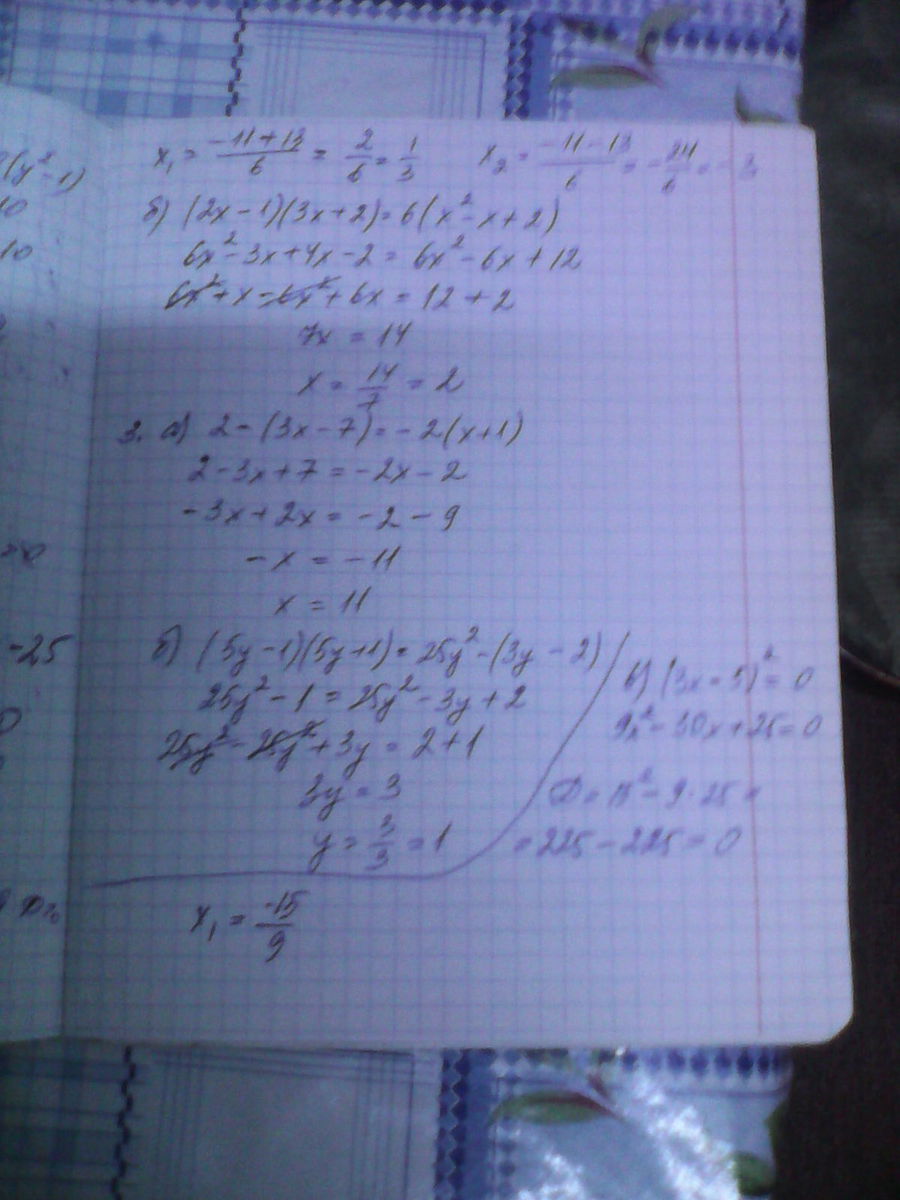 x₁ = (-11+13)/6 = 2/6 = 1/3    x₂ = (-11-13)/6 = -24/6 = -
б) (2x-1)(3x+2) = 6(x²-x+2)
6x²-3x+4x-2 = 6x²-6x+12
6x²+x-6x²+6x = 12+2
7x = 14
x = 14/7 = 2
3. а) 2-(3x-7) = -2(x+1)
2-3x+7 = -2x-2
-3x+2x = -2-9
-x = -11
x = 11
б) (5y-1)(5y+1) = 25y²-(3y-2)
25y²-1 = 25y²-3y+2
25y²-25y²+3y = 2+1
3y = 3
y = 3/3 = 1
в) (3x-5)² = 0
9x²-30x+25 = 0
D = 15²-9·25 =
= 225-225 = 0
x₁ = -15/9
(y²-1)
10
10
-25